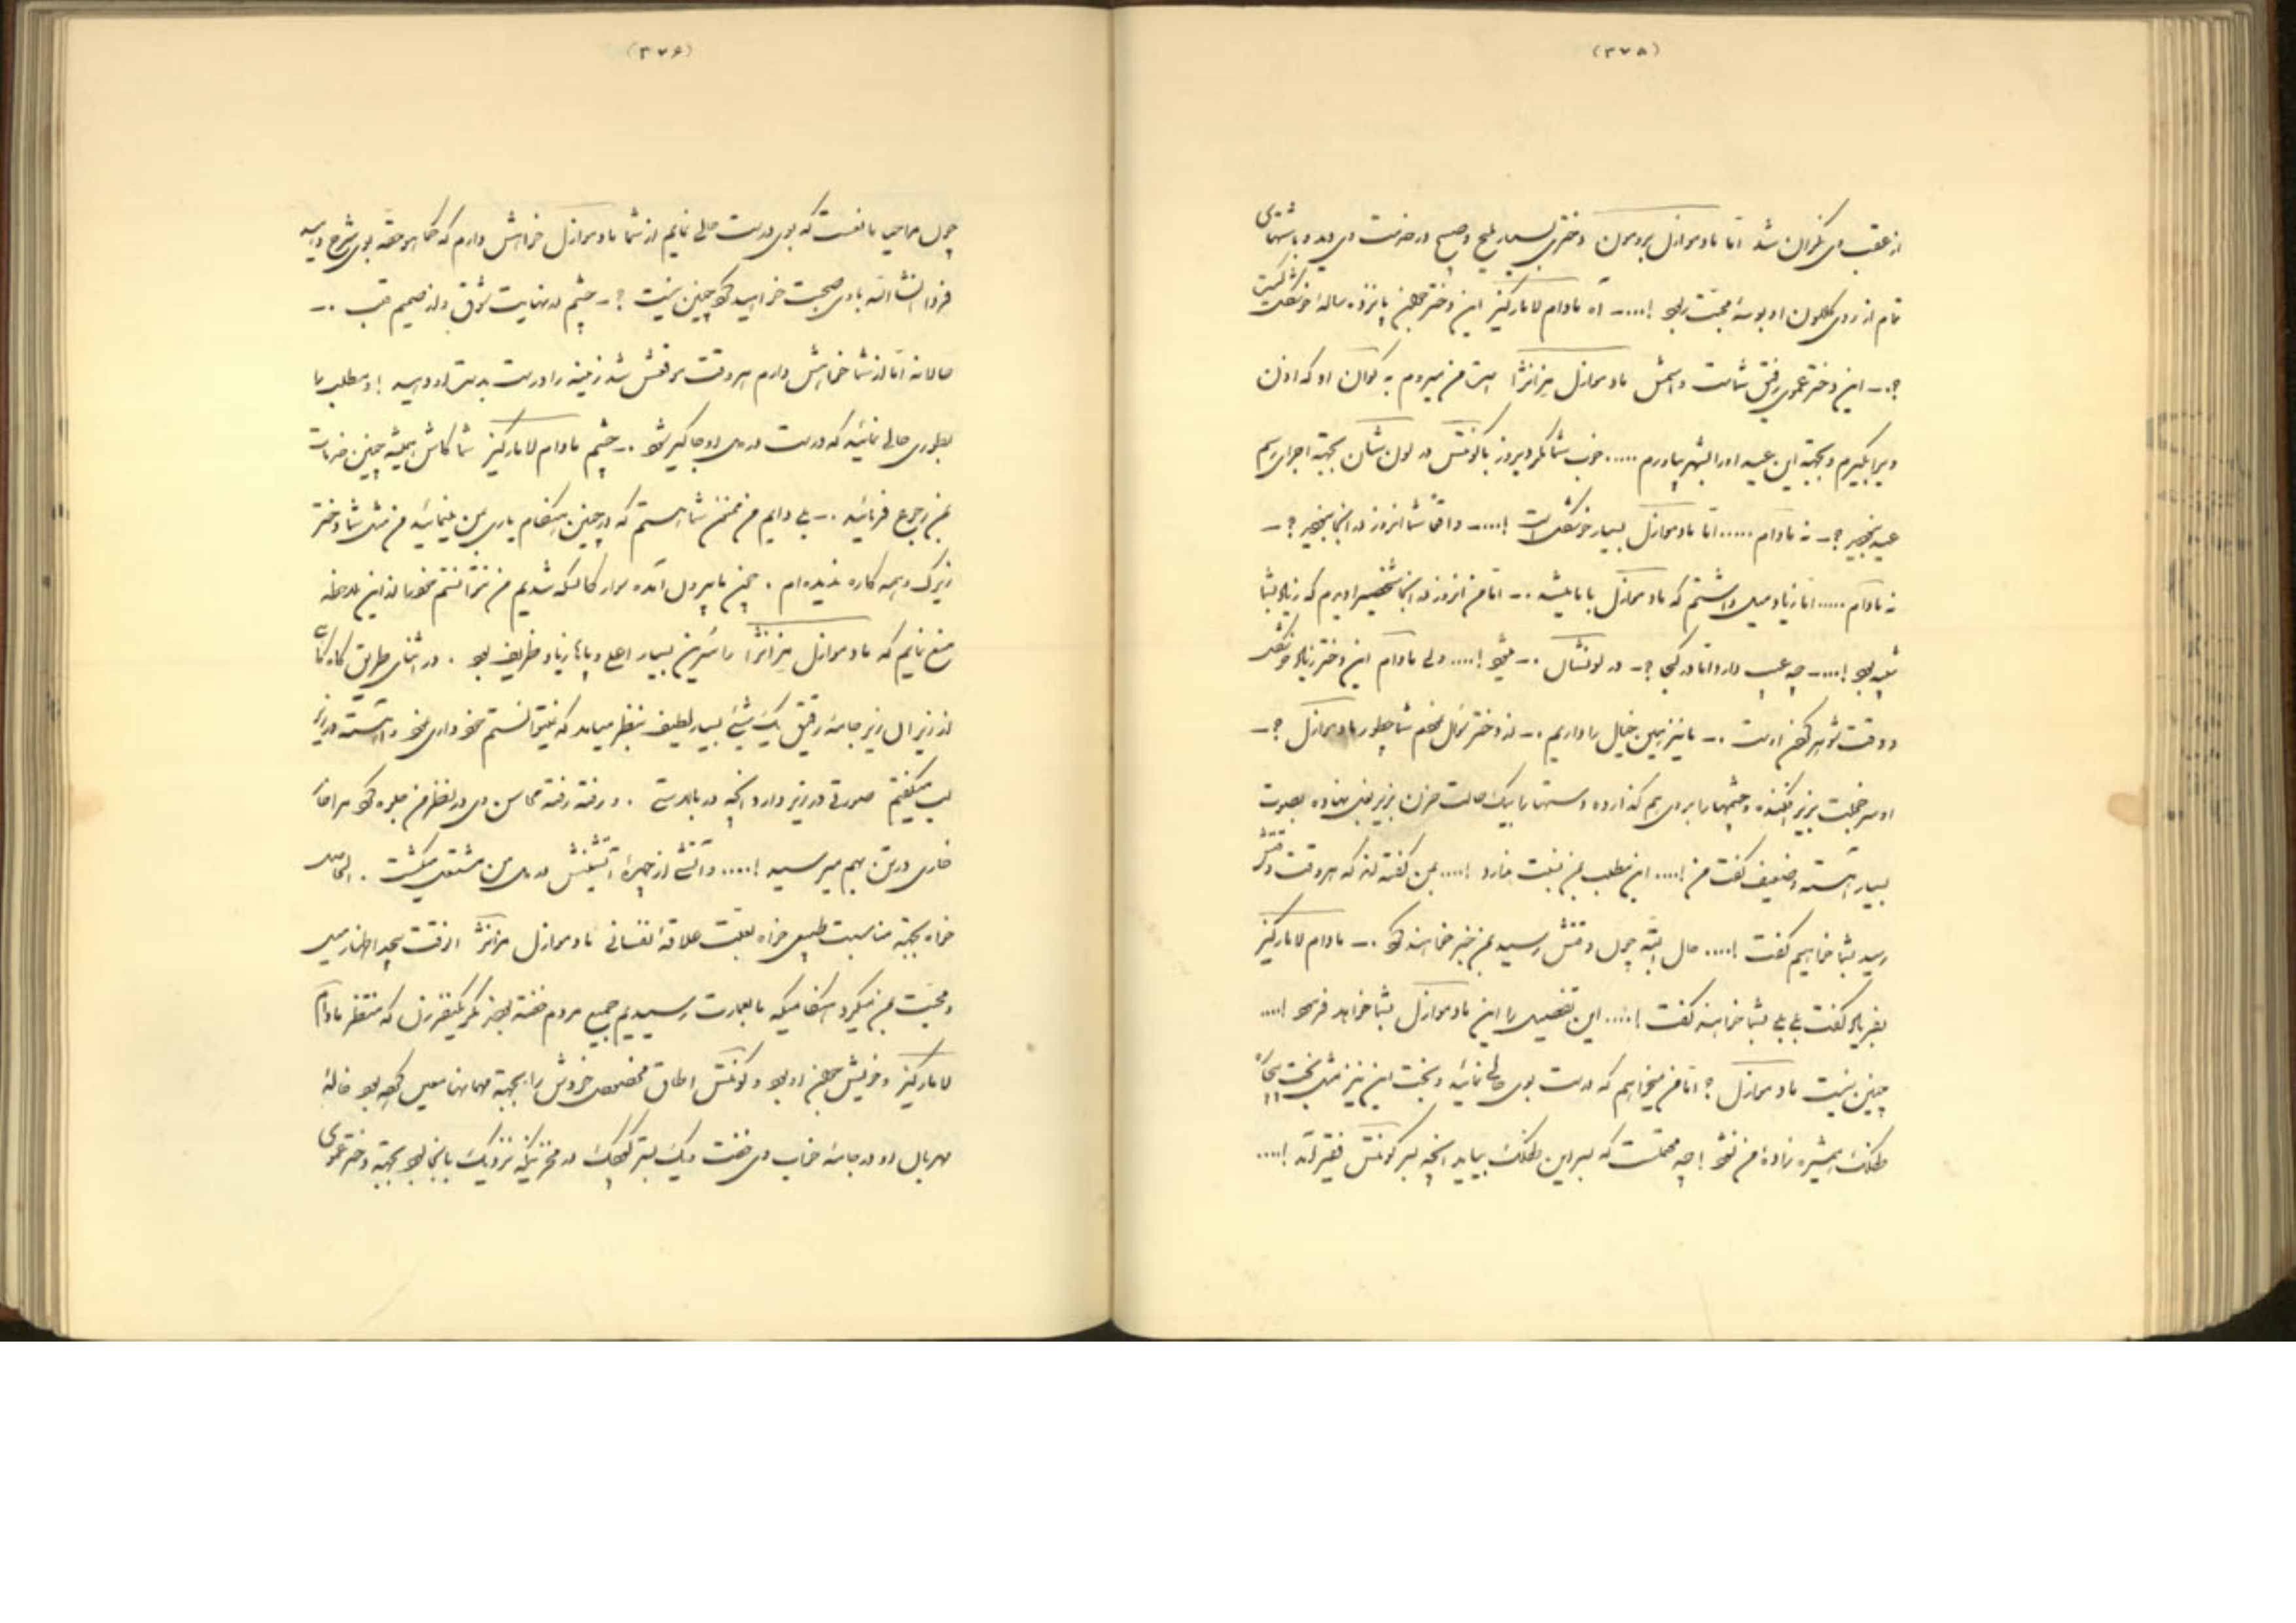 (۳۷۵)
از عقب وی نگران شد امّا مادموازل پرومون دختری بسیار ملیح و صبیح در خدمت وی دید و باشتهای
تمام از روی گلگون او بوسهٔ محبّت ربود !.... ـ آه مادام لامارکیز این دختر جهن پانزده ساله خوشگل کیست
؟ ـ این دختر عموی رفیق شماست و اسمش مادموازل است من میروم به او که اذن
ویرا بگیرم و بجهة این عید او را بشهر بیاورم ..... خوب شما مگر دیروز با کونتس در اجرای رسم
عید نبودید ؟ ـ نه مادام ..... امّا مادموازل بسیار خوشگل است !.... ـ واقعاً شما انروز در انجا نبودید ؟ ـ
نه مادام ..... امّا زیاد میل داشتم که مادموازل با ما باشد . ـ امّا من انروز در انجا شخصیرا دیدم که زیاد بشما
شبیه بود !.... ـ چه عیب دارد امّا در کجا ؟ ـ در . ـ میشود !.... ولی مادام این دختر زیاد خوشگل
و وقت شوهر کردن اوست . ـ ما نیز همین خیال را داریم . ـ شما چطور مادموازل ؟ ـ
او سر خجلت بزیر افکنده و چشمها را بروی هم گذارده و دستها را بیک حالت حزن بزیر بغل نهاده بصوت
بسیار آهسته و ضعیف گفت من !.... این مطلب بمن نسبت ندارد !.... بمن گفته‌اند که هر وقت وقتش
رسید بشما خواهیم گفت !.... حال البتّه چون وقتش رسید بمن خبر خواهند کرد . ـ مادام لامارکیز
بفریاد گفت بلی بلی بشما خواهند گفت !.... این تفصیل را این مادموازل بشما خواهد فرمود !....
چنین نیست مادموازل ؟ امّا من میخواهم که درست بوی حالی نمائید و بخت این نیز مثل بخت
طفلک همشیره زادهٔ من نشود ! چه که بسر این طفلک بیاید انچه بسر کونتس فقیر آمد !....
(۳۷۶)
چون مرا حیا مانعست که بوی درست حالی نمایم از شما مادموازل خواهش دارم که کما هو حقّه بوی شرح دهید
فردا انشاءالله با وی صحبت خواهید کرد چنین نیست ؟ ـ چشم در نهایت شوق و از صمیم قلب . ـ
امّا از شما خواهش دارم هر وقت موقعش شد زمینه را درست بدست او دهید ! و مطلب را
بطوری حالی نمائید که درست در دل او جاگیر شود . ـ چشم مادام لامارکیز شما کاش همیشه چنین خدمات
بمن رجوع فرمائید . ـ بلی من ممنون شما هستم که در چنین هنگام یاری من مینمائید من مثل شما دختر
زیرک و همه کاره ندیده‌ام . چون ما بیرون آمده سوار کالسکه شدیم من نتوانستم خود را از این ملاحظه
منع نمایم که مادموازل را سُرین بسیار اعلی و پاها زیاد ظریف بود . در اثنای طریق گاه گاهی
از زیر ان زیر جامهٔ رقیق یک شیئی بسیار لطیف بنظر میامد که نمیتوانستم خود داری نمود و آهسته در زیر
لب میگفتم صورتی در زیر دارد انچه در بالاستی . و رفته رفته محاسن وی در نظر من جلوه کرد مرا
خاری در تن بهم میرسید !.... و آتشی از چهرهٔ آتشینش در دل من مشتعل میگشت . الحاصل
خواه بجهة مناسبت طبیعی خواه بعلّت علاقهٔ نفسانی مادموازل انوقت بیحد اظهار میل
و محبّت بمن میکرد هنگامیکه ما بعمارت رسیدیم جمیع مردم خفته بودند مگر یکنفر زن که منتظر مادام
لامارکیز و خویش جهن او بود و کونتس اطاق مخصوص خودش را بجهة مهمانها معین کرده بود خالهٔ
مهربان او در جامهٔ خواب وی خفت و یک بستر کوچک در نزدیک بانجا بود بجهة دختر عموی